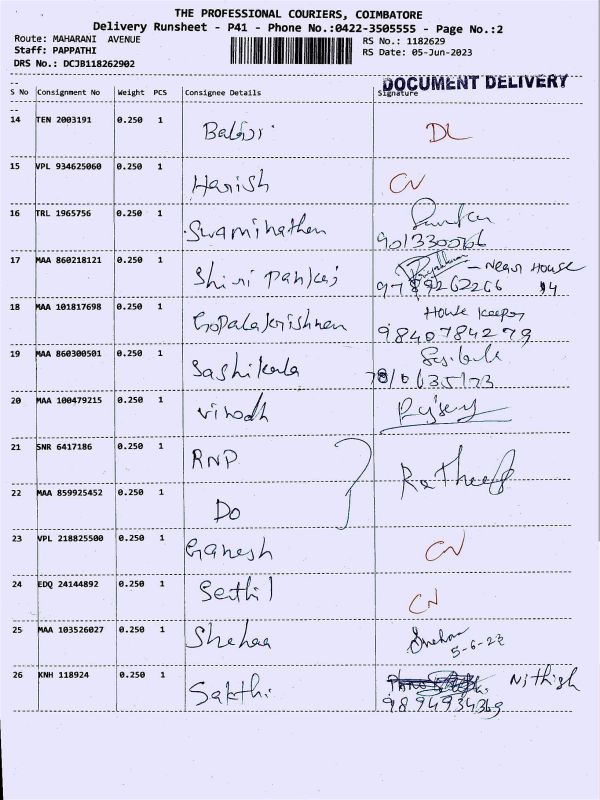 THE PROFESSIONAL COURIERS, COIMBATORE
Delivery Runsheet - P41 - Phone No.:0422-3505555 - Page No.:2
Route: MAHARANI AVENUE
RS No.: 1182629
Staff: PAPPATHI
RS Date: 05-Jun-2023
DRS No.: DCJB118262902
DOCUMENT DELIVERY
S No Consignment No Weight PCS Consignee Details Signature
14 TEN 2003191 0.250 1 DL
15 VPL 934625060 0.250 1 Harish CN
16 TRL 1965756 0.250 1 Swaminathan
901330066
17 MAA 860218121 0.250 1 Shiri Pankaj - Near House
9789262266 14
18 MAA 101817698 0.250 1 Gopalakrishnan House keeper
9840784279
19 MAA 860300501 0.250 1 Sashikala
20 MAA 100479215 0.250 1 Vinodh
21 SNR 6417186 0.250 1 RNP
22 MAA 859925452 0.250 1 Do
23 VPL 218825500 0.250 1 Ganesh CN
24 EDQ 24144892 0.250 1 Senthil CN
25 MAA 103526027 0.250 1 Snehaa Snehaa
5-6-23
26 KNH 118924 0.250 1 Sakthi Nithish
9894934369